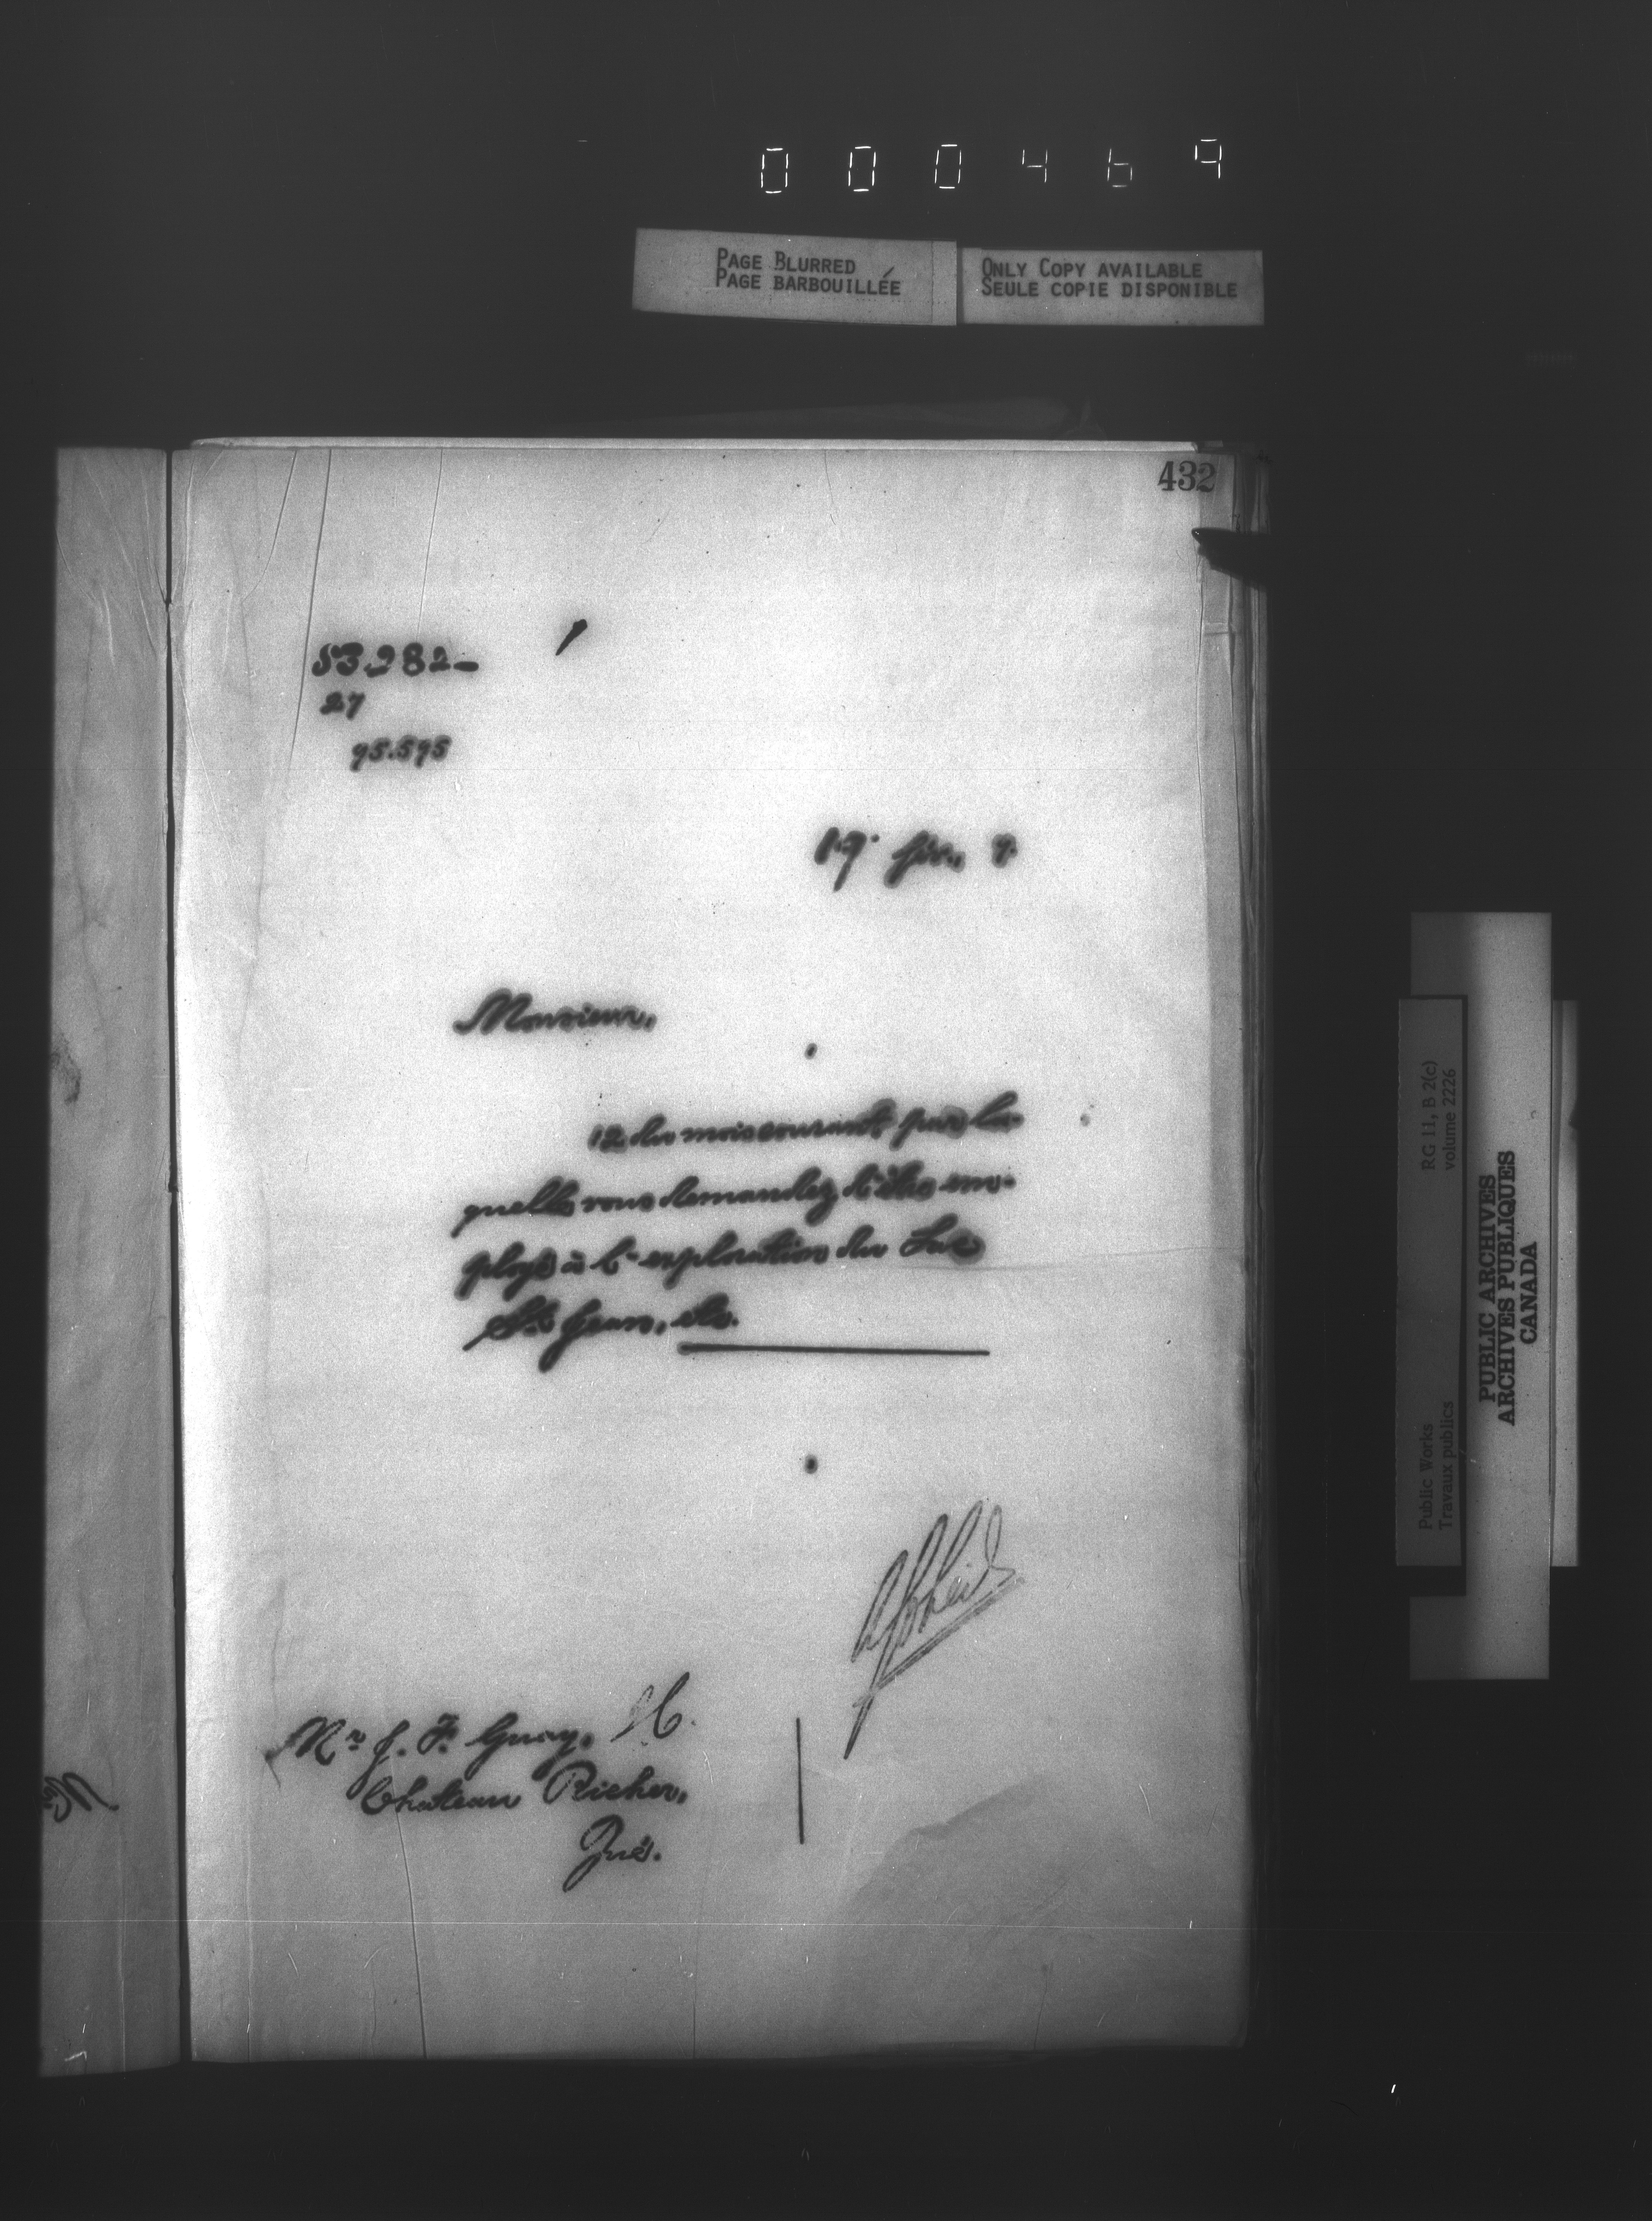 000469
PAGE BLURRED
PAGE BARBOUILLÉE
ONLY COPY AVAILABLE
SEULE COPIE DISPONIBLE
432
53282-
27
95.595
17. fév., 9.
Monsieur,
12 du mois courant par la-
quelle vous demandez d'être em-
ployé à l'exploration du Lac
St. Jean, etc.
Mr J. F. Guay,
Chateau Richer,
Qué.
RG 11, B 2(c)
volume 2226
Public Works
Travaux publics
PUBLIC ARCHIVES
ARCHIVES PUBLIQUES
CANADA